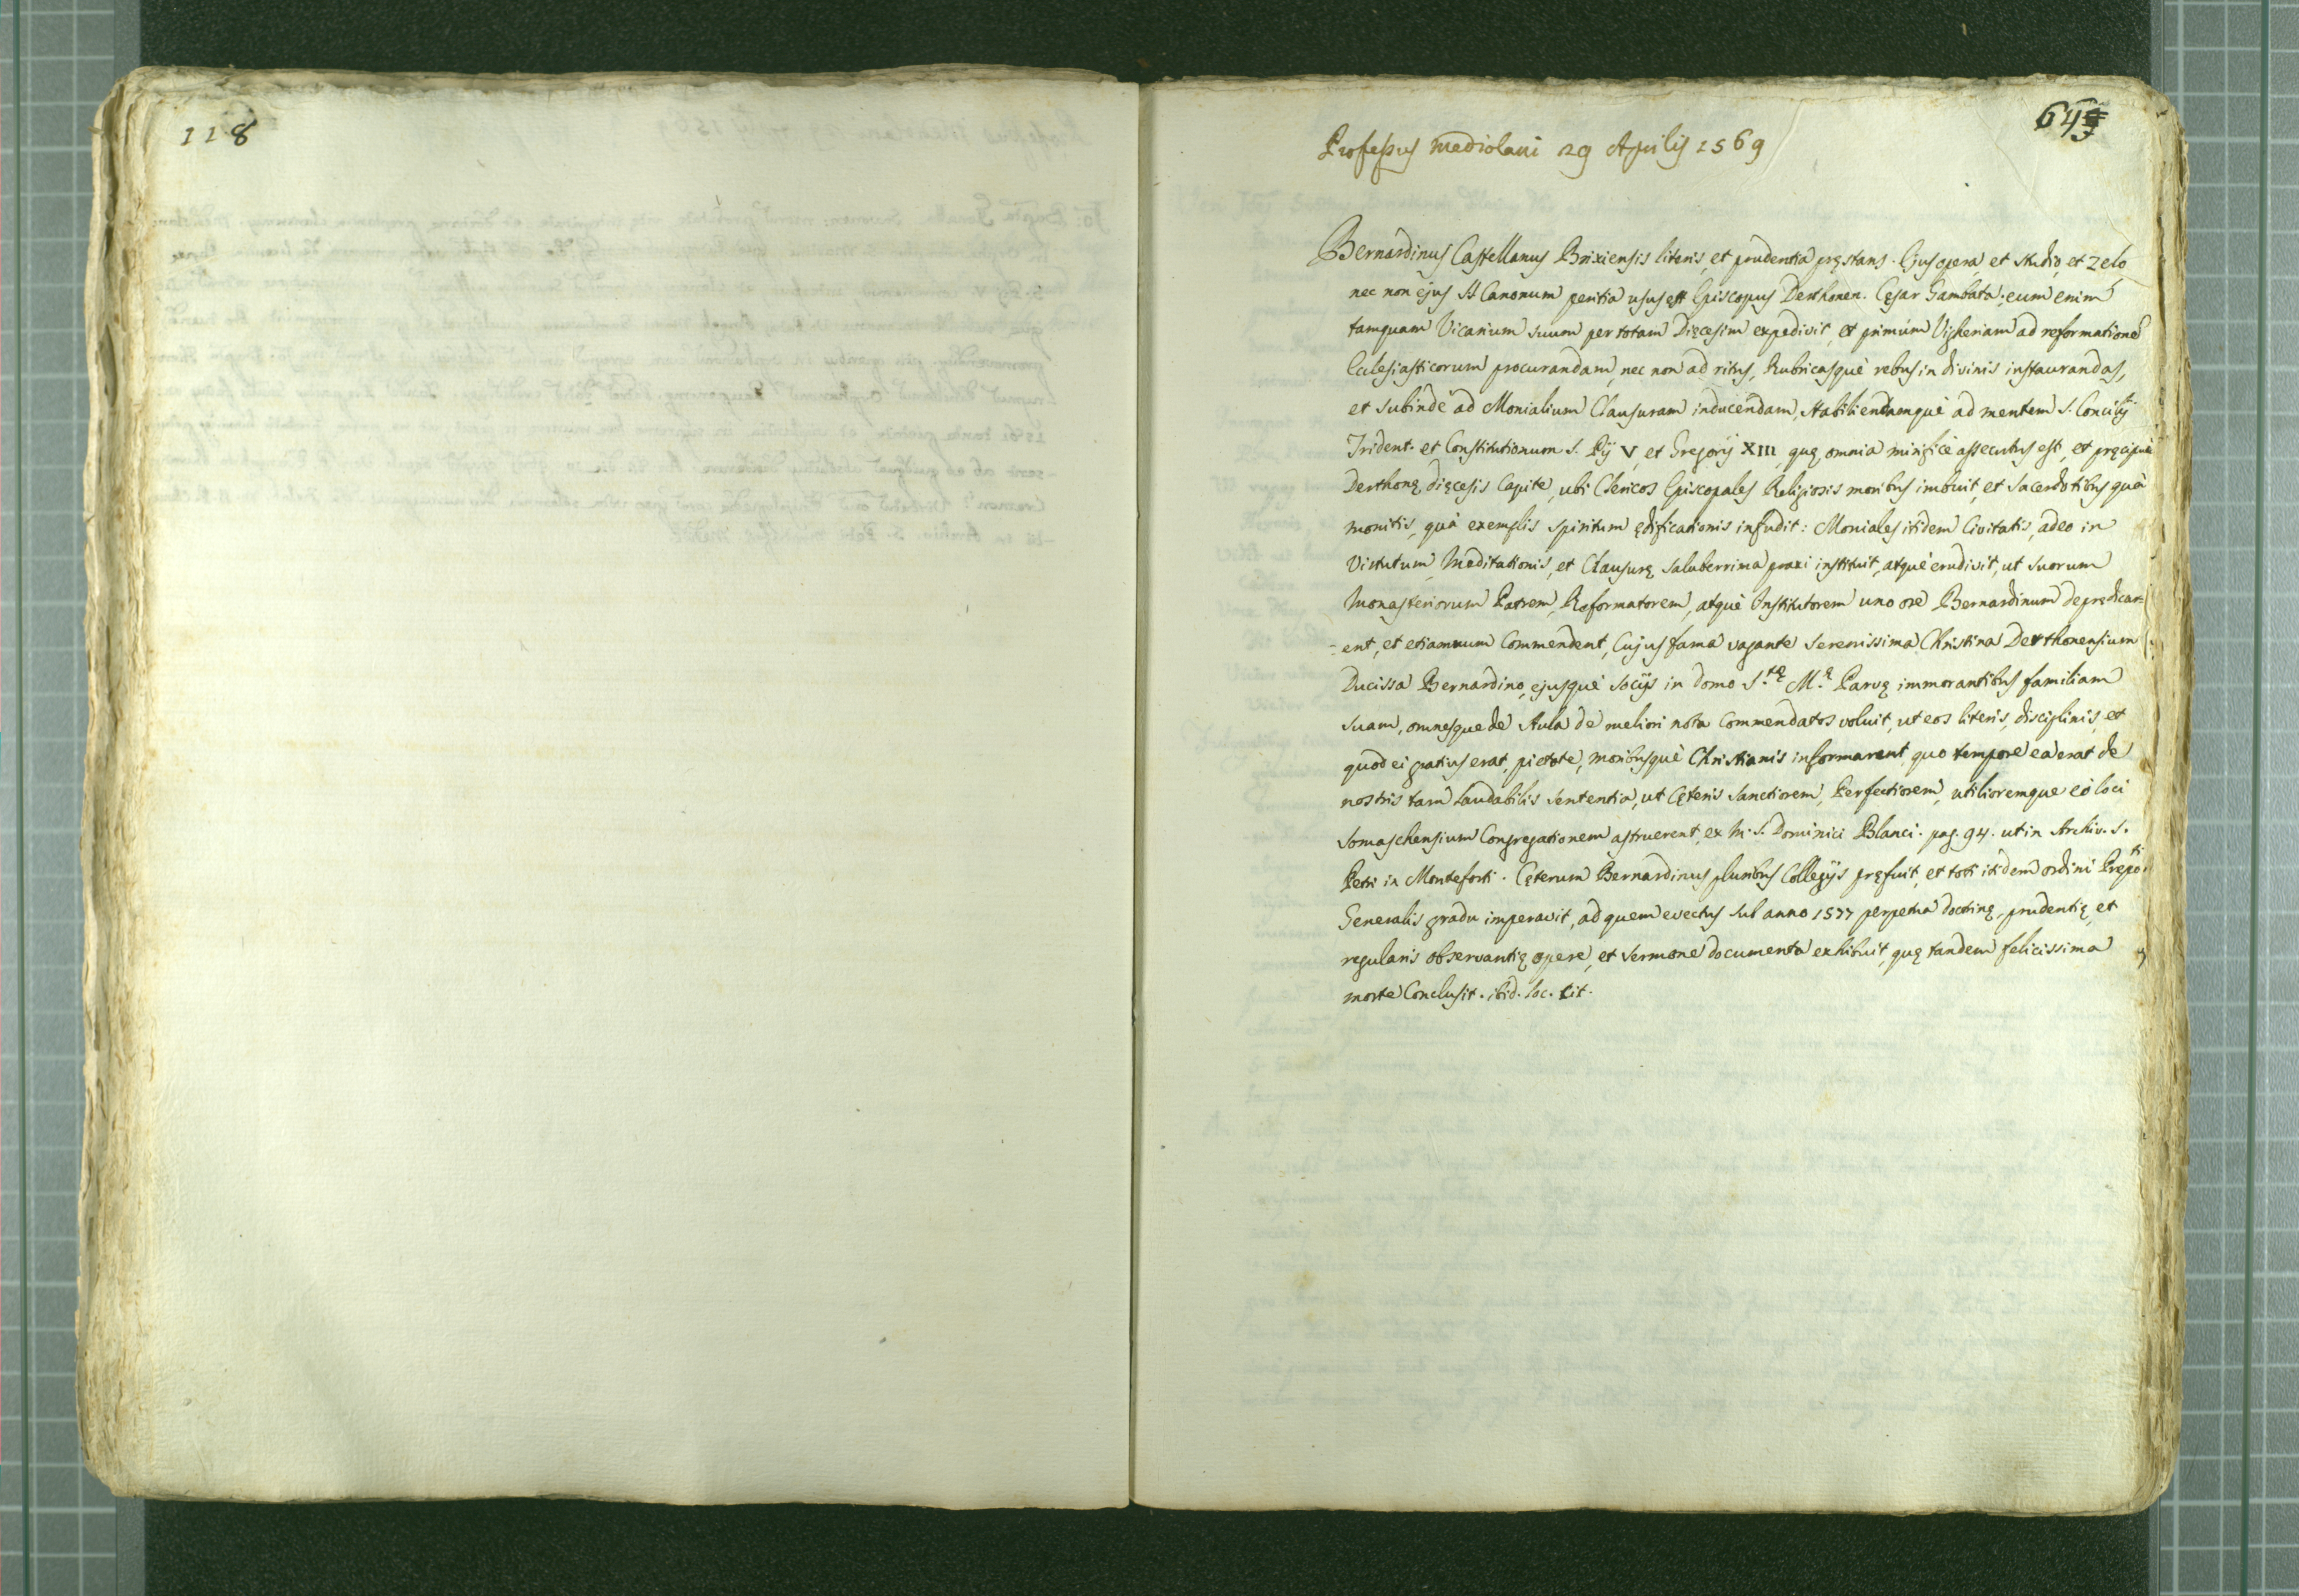 118
64
Professus Mediolani 29 Aprilis 1569
Bernardinus Castellanus Brixiensis literis, et prudentia pręstans. Ejus opera, et studio, et zelo
nec non ejus SS Canonum peritia usus est Episcopus Derthonen. Cęsar Gambara; eum enim
tamquam Vicarium suum per totam Dięcesim expedivit, et primùm Vigheriam ad reformationē
Eclesiasticorum procurandam, nec non ad ritus, Rubricasquè rebus in divinis instaurandas,
et subindè ad Monialium Clausuram inducendam, stabiliendamquè ad mentem S. Concilij
Trident. et Constitutionum S. Pij V, et Gregorij XIII, quę omnia mirificè assecutus est, et pręcipuè
Derthonę dięcesis Capite, ubi Clericos Episcopales Religiosis moribus imbuit, et Sacerdotibus quà
monitis, quà exemplis spiritum ędificationis infudit: Moniales itidem Civitatis, adeo in
Virtutum, Meditationis, et Clausurę saluberrima praxi instituit, atquè erudivit, ut suorum
Monasteriorum Patrem, Reformatorem, atquè Institutorem uno ore Bernardinum deprędicar=
=ent, et etiamnum Commendent, Cujus fama vagante Serenissima Christina Derthonensium
Ducissa Bernardino, ejusquè Socijs in domo S.tę M.ę Parvę immorantibus familiam
suam, omnesque de Aula de meliori nota Commendatos voluit, ut eos literis, disciplinis, et
quod ei gratius erat, pietate, moribusquè Christianis informarent, quo tempore ea erat de
nostris tam laudabilis sententia, ut Cęteris Sanctiorem, Perfectiorem, utilioremque eò loci
Somaschensium Congregationem astruerent, ex M. S. Dominici Blanci. pag. 94. ut in Archiv. S.
Petri in Monteforti. Cęterum Bernardinus pluribus Collegijs pręfuit, et toti itidem ordini Prępo.ti
Generalis gradu imperavit, ad quem evectus sub anno 1577 perpetua doctrinę, prudentię, et
regularis observantię opere, et sermone documenta exhibuit, quę tandem felicissima
morte Conclusit. ibid. loc. cit.